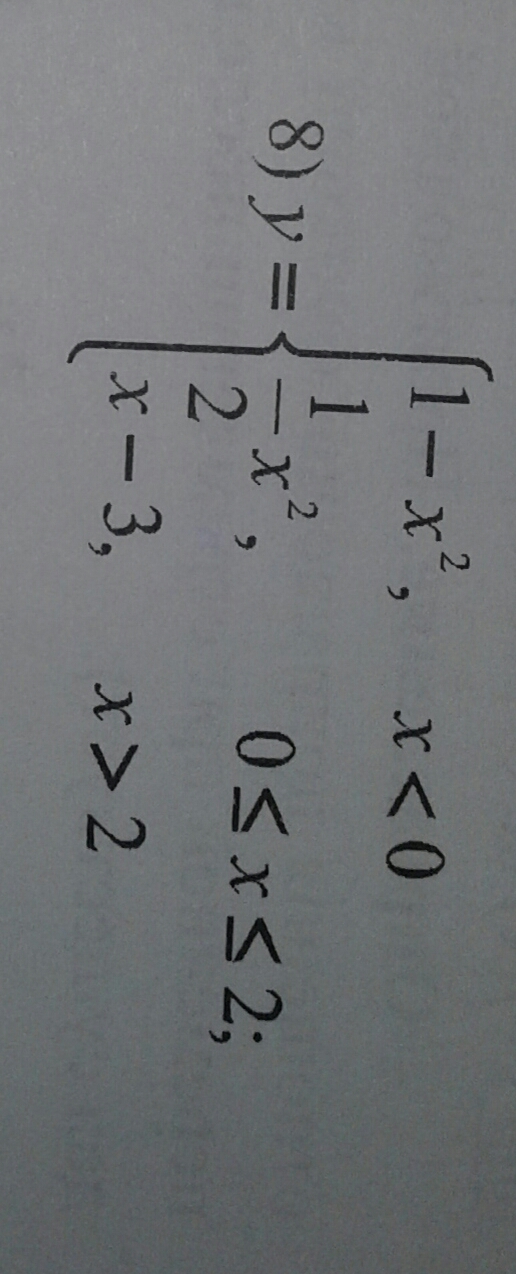 8) y = { 1 − x², x < 0
1/2 x², 0 ≤ x ≤ 2;
x − 3, x > 2